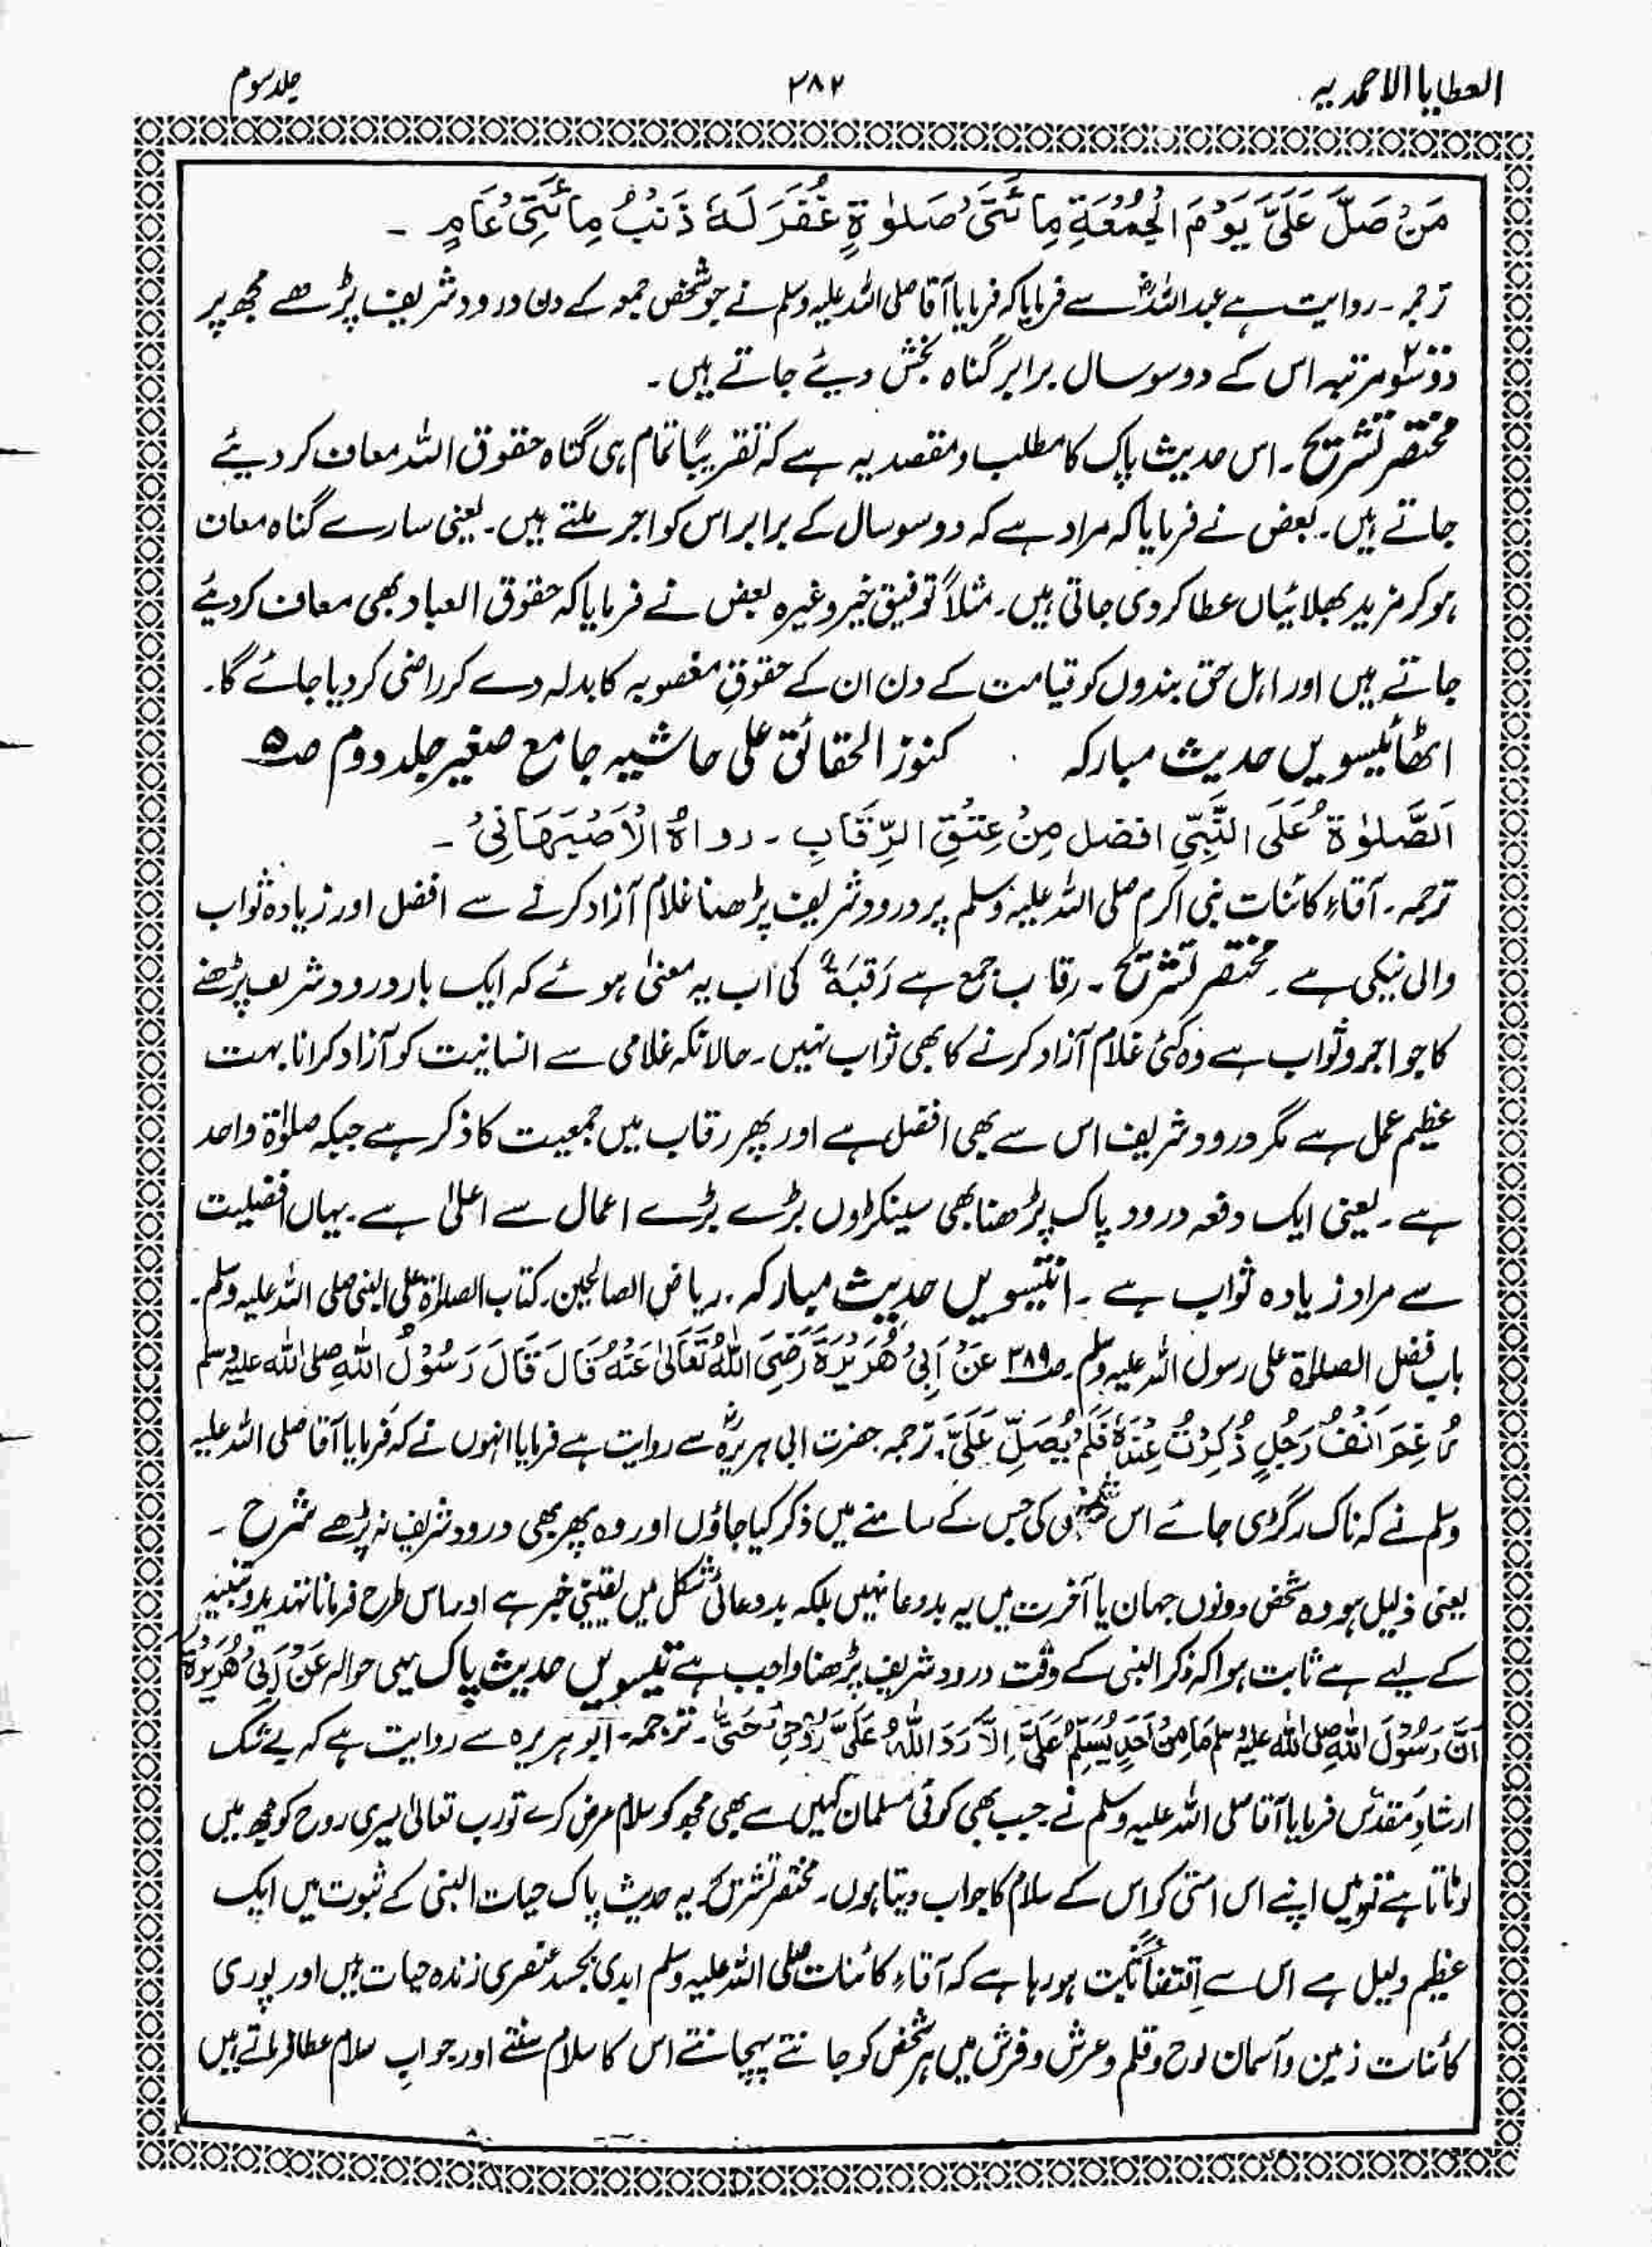 العطایا الاحمدیہ ۲۸۲ جلد سوم
مَنْ صَلَّ عَلَیَّ یَوْمَ الْجُمُعَۃِ مِائَتَیْ صَلٰوۃٍ غُفِرَ لَہٗ ذَنْبُ مِائَتَیْ عَامٍ ۔
ترجمہ ۔ روایت ہے عبد اللہؓ سے فرمایا کہ فرمایا آقا صلی اللہ علیہ وسلم نے جو شخص جمعہ کے دن درود شریف پڑھے مجھ پر
دو سو مرتبہ اس کے دو سو سال برابر گناہ بخش دیئے جاتے ہیں ۔
مختصر تشریح ۔ اس حدیث پاک کا مطلب و مقصد یہ ہے کہ تقریبًا تمام ہی گناہ حقوق اللہ معاف کر دیئے
جاتے ہیں ۔ بعض نے فرمایا کہ مراد ہے کہ دو سو سال کے برابر اس کو اجر ملتے ہیں ۔ یعنی سارے گناہ معاف
ہو کر مزید بھلائیاں عطا کر دی جاتی ہیں ۔ مثلاً توفیق خیر وغیرہ بعض نے فرمایا کہ حقوق العباد بھی معاف کر دیئے
جاتے ہیں اور اہل حق بندوں کو قیامت کے دن ان کے حقوقِ مغصوبہ کا بدلہ دے کر راضی کر دیا جائے گا ۔
اٹھائیسویں حدیث مبارکہ کنوز الحقائق علی حاشیہ جامع صغیر جلد دوم صہ ۵
اَلصَّلٰوۃُ عَلَی النَّبِیِّ افضل مِنْ عِتْقِ الرِّقَابِ ۔ رواہُ الْاَصْبَہَانِیْ ۔
ترجمہ ۔ آقاءِ کائنات نبی اکرم صلی اللہ علیہ وسلم پر درود شریف پڑھنا غلام آزاد کرنے سے افضل اور زیادہ ثواب
والی نیکی ہے ۔ مختصر تشریح ۔ رقاب جمع ہے رَقَبَۃٌ کی اب یہ معنیٰ ہوئے کہ ایک بار درود شریف پڑھنے
کا جو اجر و ثواب ہے وہ کئی غلام آزاد کرنے کا بھی ثواب نہیں ۔ حالانکہ غلامی سے انسانیت کو آزاد کرانا بہت
عظیم عمل ہے مگر درود شریف اس سے بھی افضل ہے اور پھر رقاب میں جمعیت کا ذکر ہے جبکہ صلوٰۃ واحد
ہے ۔ یعنی ایک دفعہ درود پاک پڑھنا بھی سینکڑوں بڑے بڑے اعمال سے اعلیٰ ہے ۔ یہاں افضلیت
سے مراد زیادہ ثواب ہے ۔ انتیسویں حدیث مبارکہ ۔ ریاض الصالحین ۔ کتاب الصلاۃ علی النبی صلی اللہ علیہ وسلم ۔
باب فضل الصلاۃ علی رسول اللہ علیہ وسلم ۔ صہ ۳۸۹ عَنْ اَبِیْ ھُرَیْرَۃَ رَضِیَ اللہُ تَعَالٰی عَنْہُ قَالَ قَالَ رَسُوْلُ اللہِ صلی اللہ علیہ وسلم
رَغِمَ اَنْفُ رَجُلٍ ذُکِرْتُ عِنْدَہٗ فَلَمْ یُصَلِّ عَلَیَّ ۔ ترجمہ حضرت ابی ہریرہؓ سے روایت ہے فرمایا انہوں نے کہ فرمایا آقا صلی اللہ علیہ
وسلم نے کہ ناک رگڑی جائے اس شخص کی جس کے سامنے میں ذکر کیا جاؤں اور وہ پھر بھی درود شریف نہ پڑھے شرح ۔
یعنی ذلیل ہو وہ شخص دونوں جہان یا آخرت میں یہ بد دعا نہیں بلکہ بد دعائی شکل میں یقینی خبر ہے اور اس طرح فرمانا تہدید و تنبیہ
کے لیے ہے ثابت ہوا کہ ذکر النبی کے وقت درود شریف پڑھنا واجب ہے تیسویں حدیث پاک یہی حوالہ عَنْ اَبِیْ ھُرَیْرَۃَ
اَنَّ رَسُوْلَ اللہِ صلی اللہ علیہ وسلم مَا مِنْ اَحَدٍ یُسَلِّمُ عَلَیَّ اِلَّا رَدَ اللہُ عَلَیَّ رُوْحِیْ حَتّٰی ۔ ترجمہ ۔ ابو ہریرہ سے روایت ہے کہ بے شک
ارشادِ مقدس فرمایا آقا صلی اللہ علیہ وسلم نے جب بھی کوئی مسلمان کہیں سے بھی مجھ کو سلام عرض کرے تو رب تعالیٰ میری روح کو مجھ میں
لوٹاتا ہے تو میں اپنے اس امتی کو اس کے سلام کا جواب دیتا ہوں ۔ مختصر تشریح یہ حدیث پاک حیات النبی کے ثبوت میں ایک
عظیم دلیل ہے اس سے اقتضاً ثابت ہو رہا ہے کہ آقاءِ کائنات صلی اللہ علیہ وسلم ابدی بجسد عنصری زندہ حیات ہیں اور پوری
کائنات زمین و آسمان لوح و قلم و عرش و فرش میں ہر شخص کو جانتے پہچانتے اس کا سلام سنتے اور جوابِ سلام عطا فرماتے ہیں